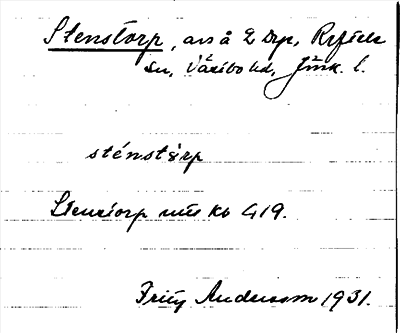 Stenstorp, avs å 2 Drp, Rydala
sn, Västbo hd, Jönk. l.
sténstɷrp
Stenstorp
Fritz Andersson 1931.